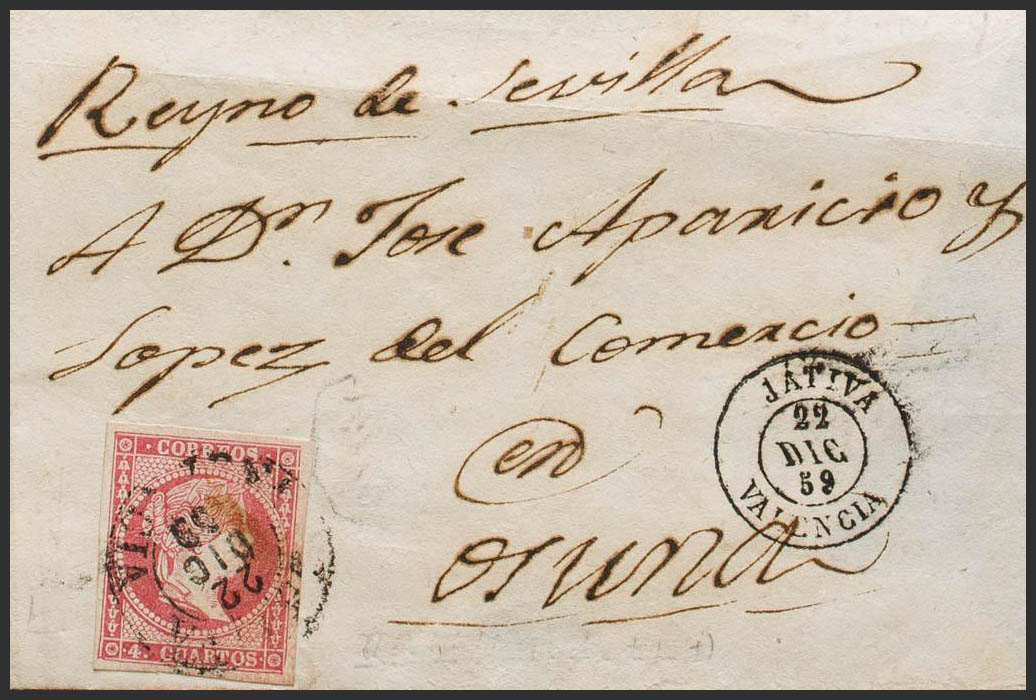 Reyno de Sevilla
A Dn. Jose Aparicio y
Lopez del Comercio
en
osuna
JATIVA
22
DIC
59
VALENCIA
CORREOS
22
DIC
59
4. CUARTOS